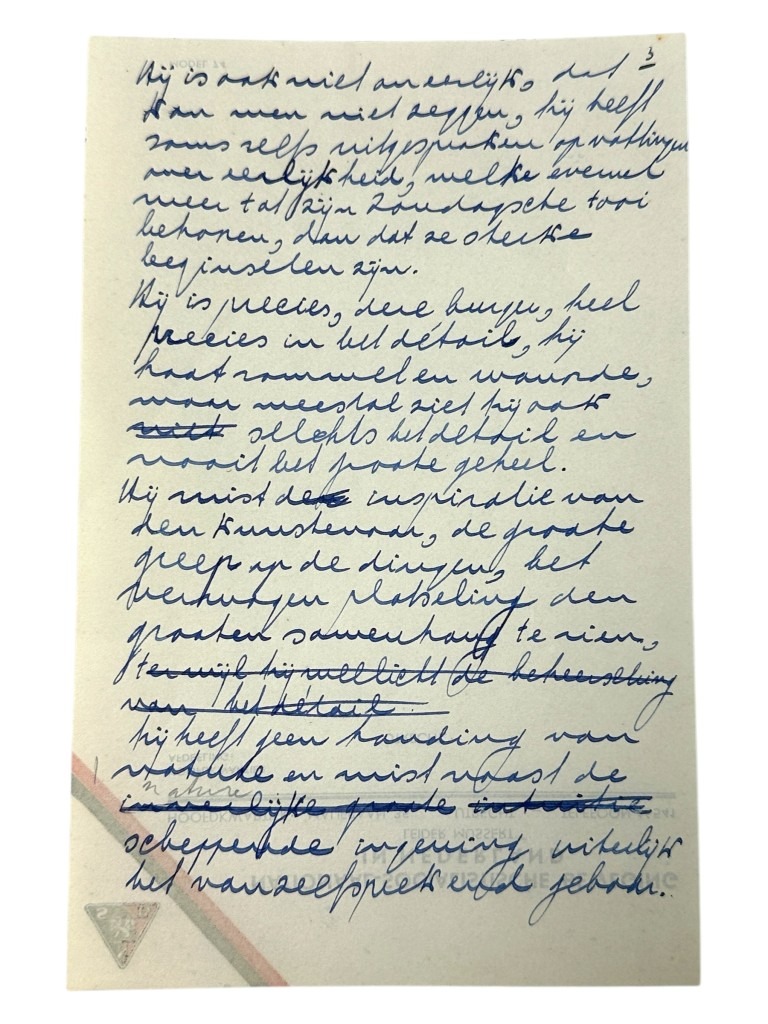 3
Hij is ook niet oneerlijk, dat
kan men niet zeggen, hij heeft
soms zelfs uitgesproken opvattingen
over eerlijkheid, welke evenwel
meer tot zijn zondagsche tooi
behoren, dan dat ze sterke
beginselen zijn.
Hij is precies, deze burger, heel
precies in het détail, hij
haat rommel en wanorde,
maar meestal ziet hij ook
niet slechts het détail en
nooit het groote geheel.
Hij mist de inspiratie van
den kunstenaar, de groote
greep op de dingen, het
vermogen plotseling den
grooten samenhang te zien,
terwijl hij wellicht de beheersching
van het détail
hij heeft geen houding van
nature en mist naast de
nature
innerlijke groote intuitie
scheppende ingeving uiterlijk
het vanzelfsprekend gebaar.
MODEL 74
AFDELING:
HOOFDKWARTIER UTRECHT TELEFOON
LEIDER MUSSERT
IN NEDERLAND
NATIONAAL-SOCIALISTISCHE BEWEGING